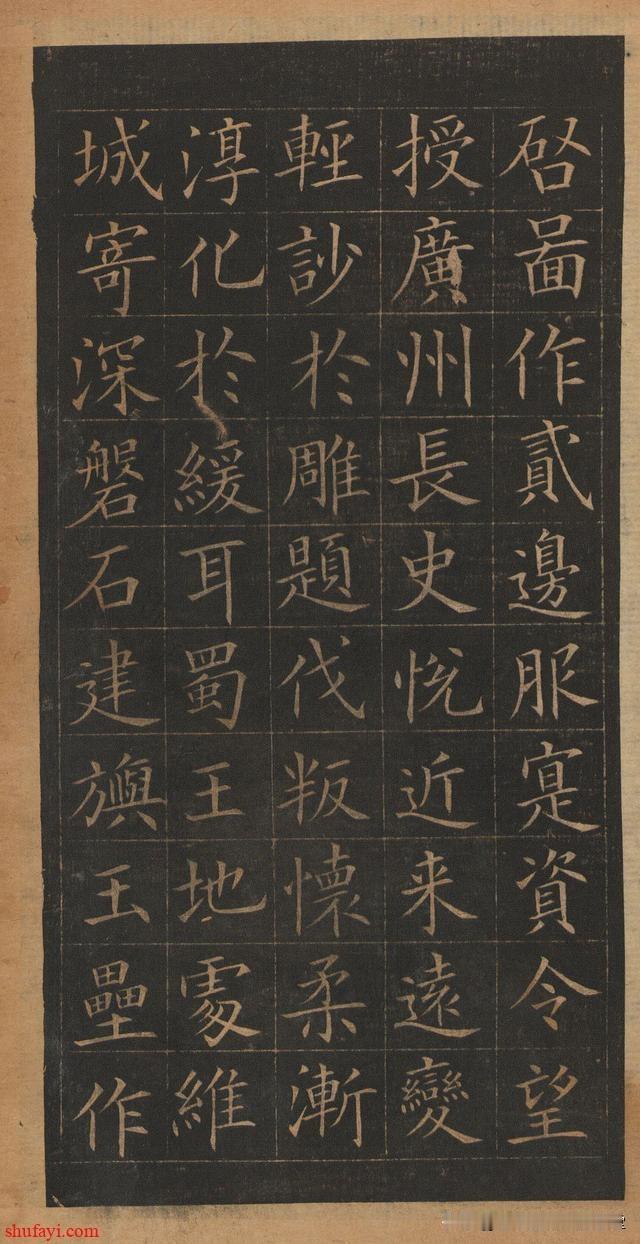 啓啚作貳邊服寔資令望
授廣州長史悅近来遠變
輕訬於雕題伐叛懷柔漸
淳化於緩耳蜀王地處維
城寄深磐石建旟玉壘作
shufayi.com